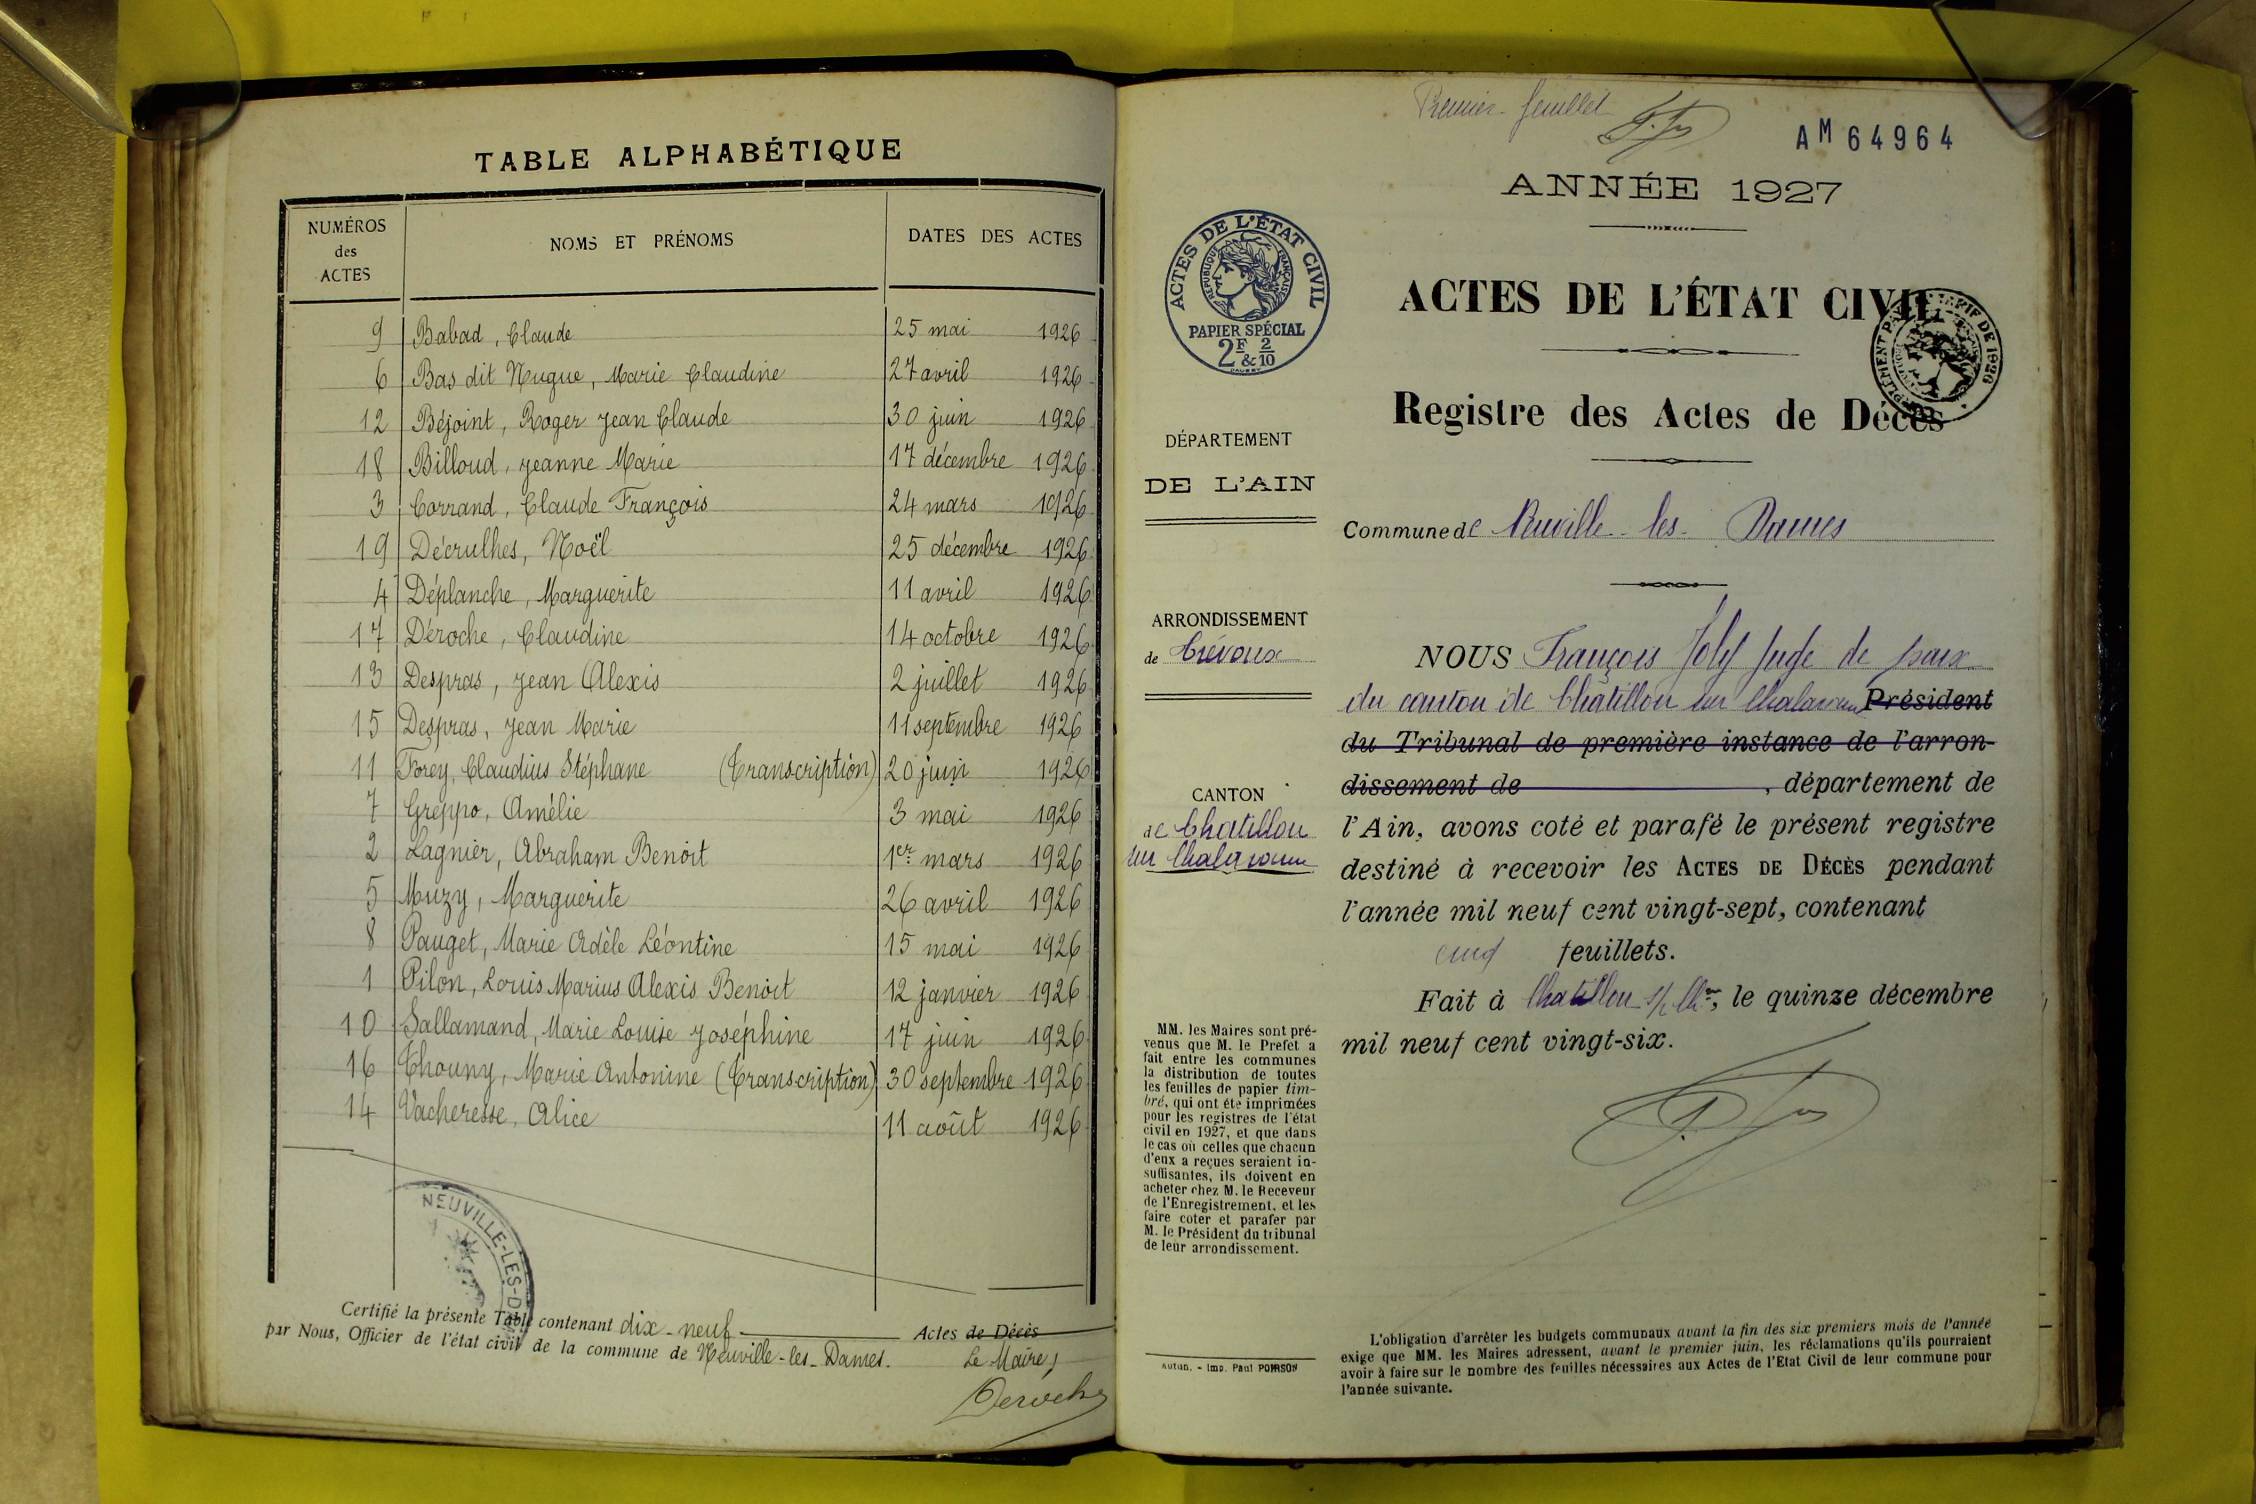 TABLE ALPHABÉTIQUE
NUMÉROS des ACTES NOMS ET PRÉNOMS DATES DES ACTES
9 Babad, Claude 25 mai 1926
6 Bas dit Nugue, Marie Claudine 27 avril 1926
12 Béjoint, Roger Jean Claude 30 juin 1926
18 Billoud, Jeanne Marie 17 décembre 1926
3 Corrand, Claude François 24 mars 1926
19 Décrulhes, Noël 25 décembre 1926
4 Déplanche, Marguerite 11 avril 1926
17 Déroche, Claudine 14 octobre 1926
13 Despras, Jean Alexis 2 juillet 1926
15 Despras, Jean Marie 11 septembre 1926
11 Forey, Claudius Stéphane (Transcription) 20 juin 1926
7 Greppo, Amélie 3 mai 1926
2 Lagnier, Abraham Benoit 1er mars 1926
5 Muzy, Marguerite 26 avril 1926
8 Pauget, Marie Adèle Léontine 15 mai 1926
1 Pilon, Louis Marius Alexis Benoit 12 janvier 1926
10 Sallamand, Marie Louise Joséphine 17 juin 1926
16 Thouny, Marie Antonine (Transcription) 30 septembre 1926
14 Vacheresse, Alice 11 août 1926
NEUVILLE-LES-D
Certifié la présente Table contenant dix-neuf Actes de Décès
par Nous, Officier de l'état civil de la commune de Neuville-les-Dames.
Le Maire,
Premier feuillet
AM 64964
ANNÉE 1927
ACTES DE L'ÉTAT CIVIL
RÉPUBLIQUE FRANÇAISE
PAPIER SPÉCIAL
2F & 2/10
ACTES DE L'ÉTAT CIVIL
Registre des Actes de Décès
DÉPARTEMENT
DE L'AIN
Commune de Neuville-les-Dames
ARRONDISSEMENT
de Trévoux
CANTON
de Chatillon
sur Chalaronne
MM. les Maires sont pré-
venus que M. le Prefet a
fait entre les communes
la distribution de toutes
les feuilles de papier tim-
bré, qui ont été imprimées
pour les registres de l'état
civil en 1927, et que dans
le cas où celles que chacun
d'eux a reçues seraient in-
suffisantes, ils doivent en
acheter chez M. le Receveur
de l'Enregistrement, et les
faire coter et parafer par
M. le Président du tribunal
de leur arrondissement.
Autun. - Imp. Paul POIRSON
NOUS François Joly Juge de paix
du canton de Chatillon sur Chalaronne Président
du Tribunal de première instance de l'arron-
dissement de , département de
l'Ain, avons coté et parafé le présent registre
destiné à recevoir les ACTES DE DÉCÈS pendant
l'année mil neuf cent vingt-sept, contenant
cinq feuillets.
Fait à Chatillon s/ Chne, le quinze décembre
mil neuf cent vingt-six.
L'obligation d'arrêter les budgets communaux avant la fin des six premiers mois de l'année
exige que MM. les Maires adressent, avant le premier juin, les réclamations qu'ils pourraient
avoir à faire sur le nombre des feuilles nécessaires aux Actes de l'Etat Civil de leur commune pour
l'année suivante.